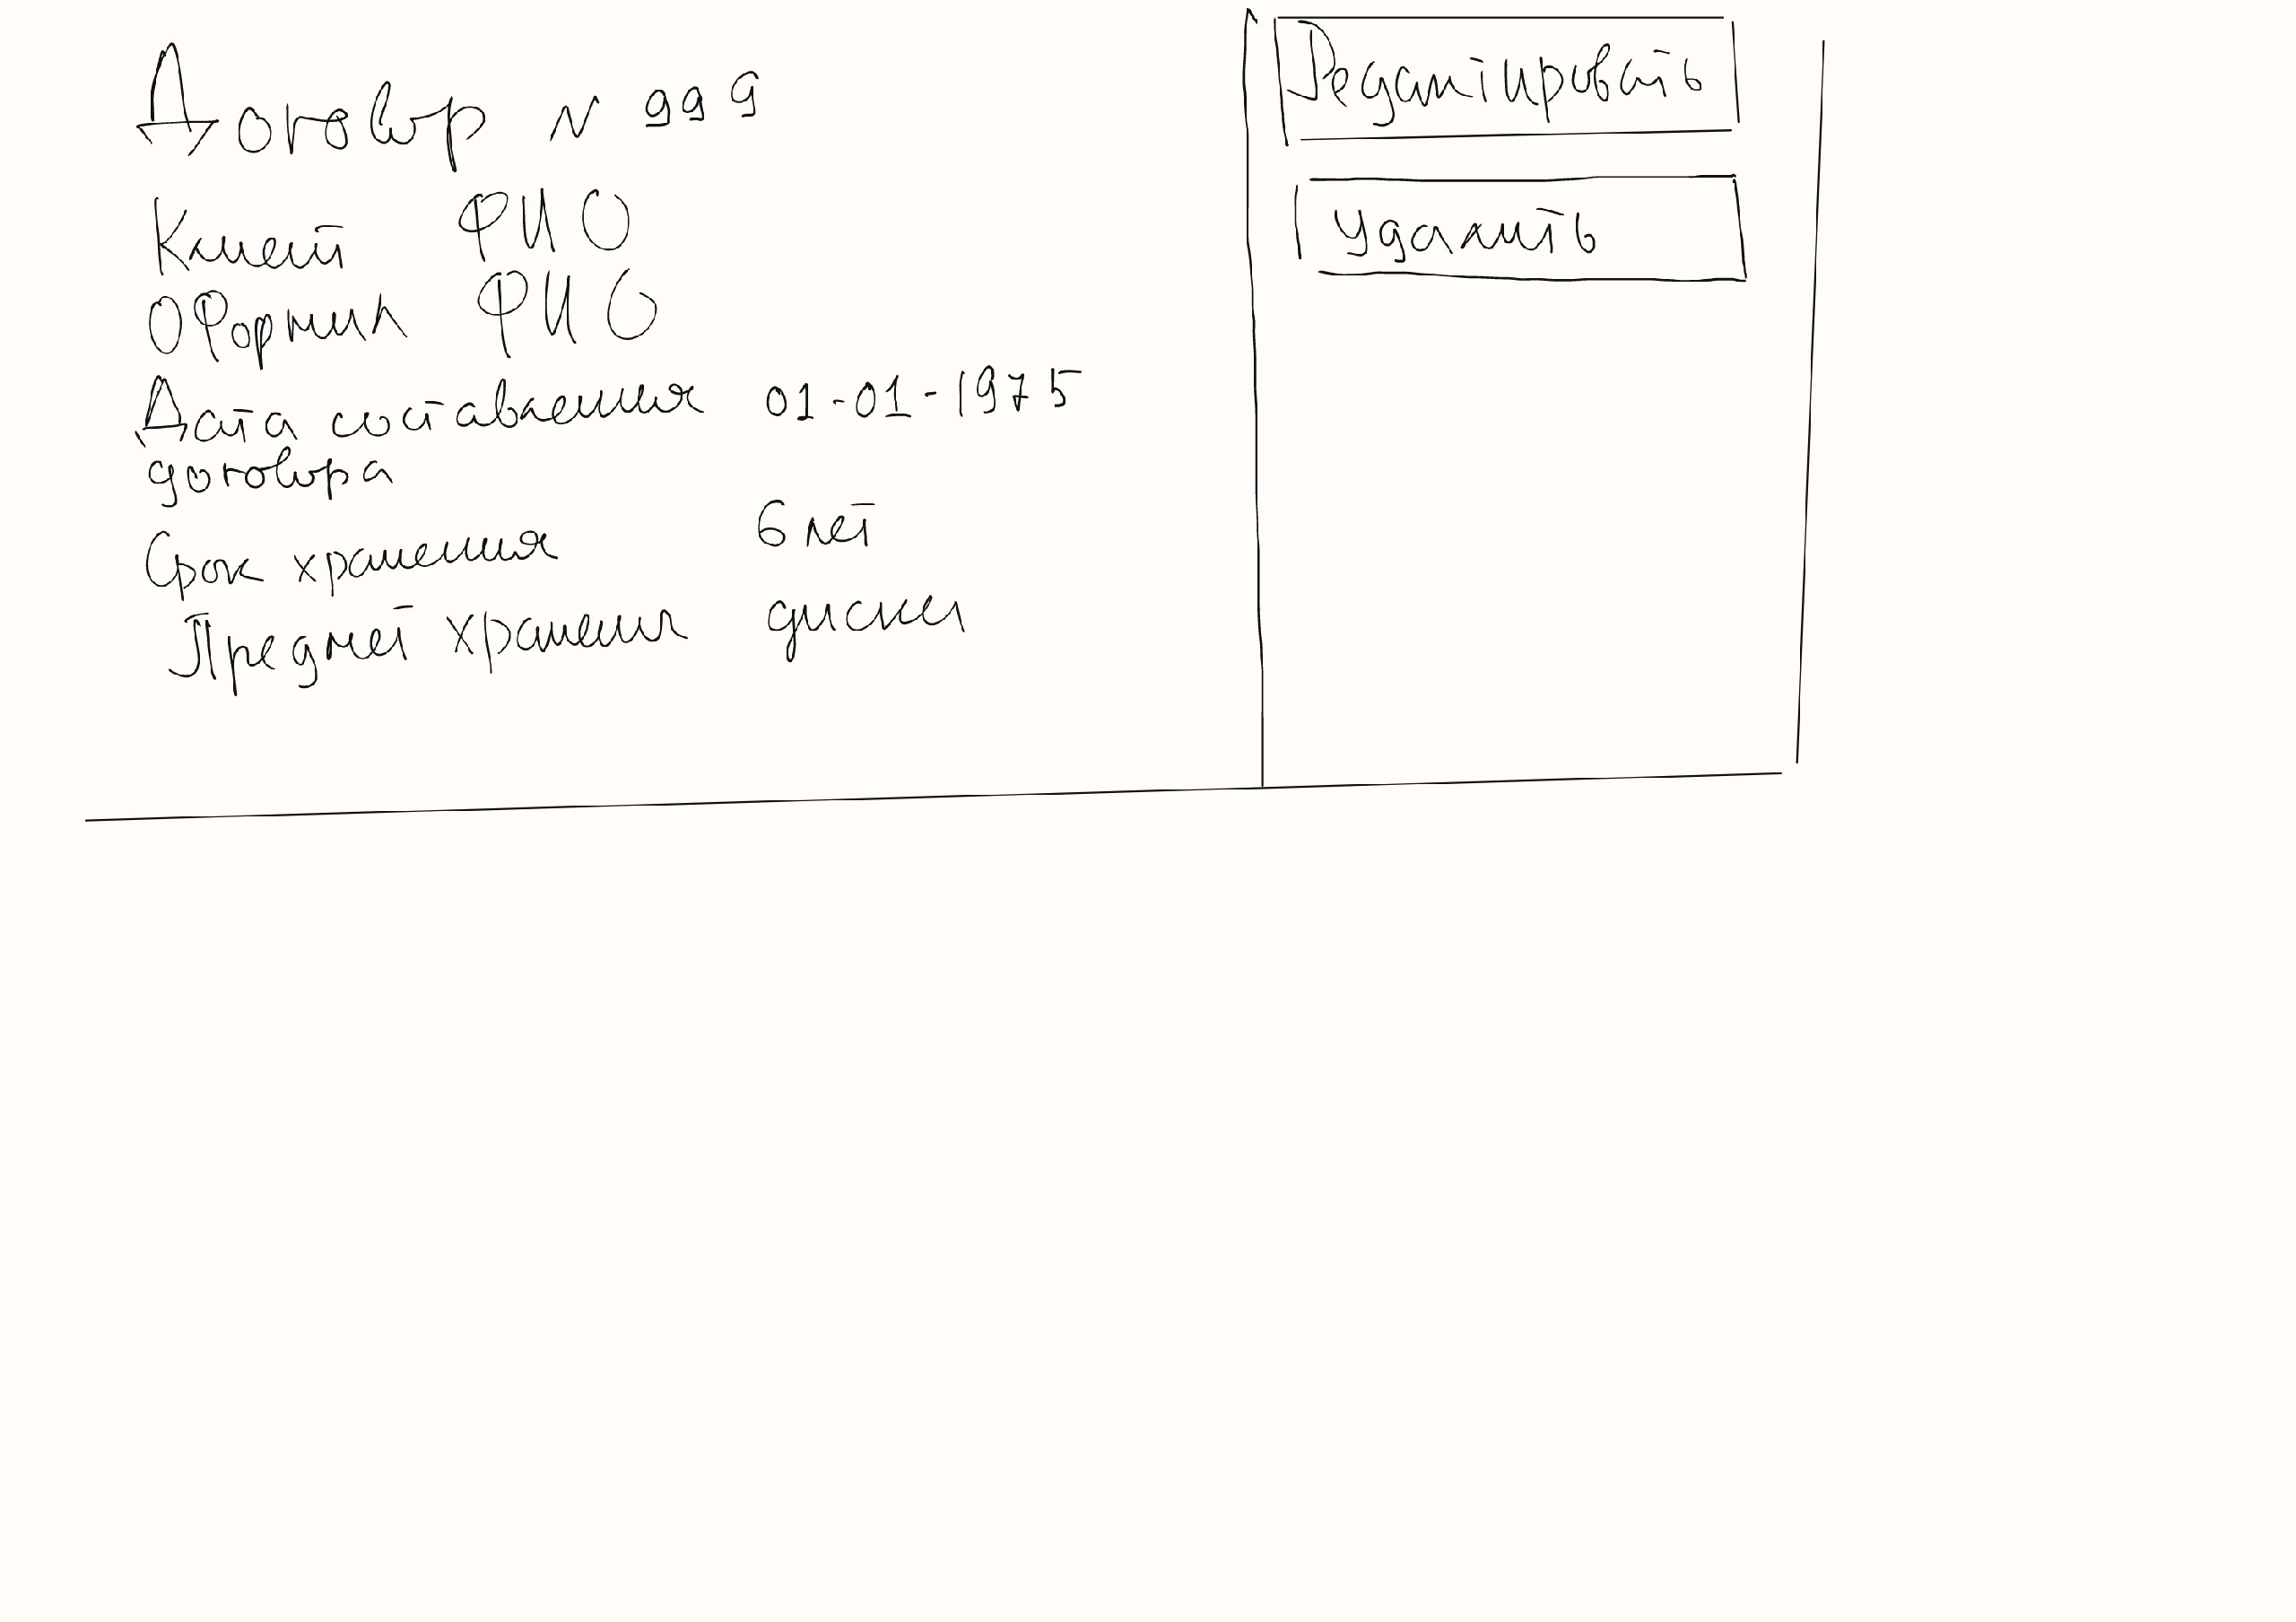 Договор N 999
Клиент ФИО
Оформил ФИО
Дата составления 01-01-1975
договора
Срок хранения 6 лет
Предмет хранения диски
Редактировать
Удалить